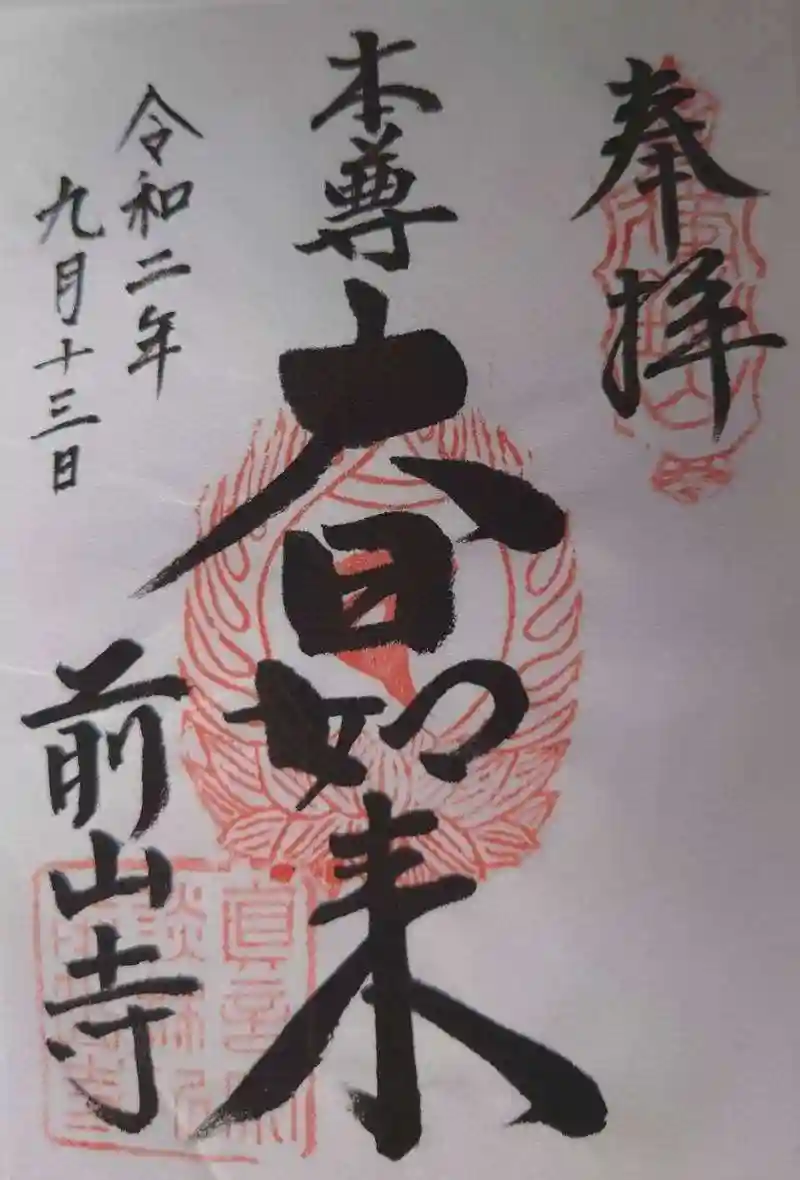 奉拝
本尊
大日如来
令和二年
九月十三日
前山寺